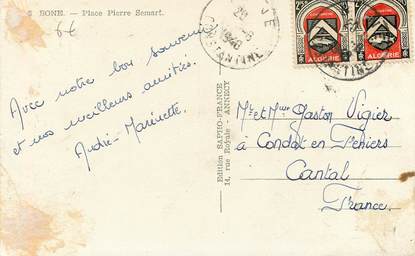 BONE. - Place Pierre Semart.
6f
Avec notre bon souvenir
et nos meilleurs amitiés.
André-Marinette.
Edition SAPHO-FRANCE - ANNECY
14, rue Royale
CONSTANTINE
ALGERIE
ALGERIE
Mr et Mme Gaston Vigier
à Condat en Feniers
Cantal
France.